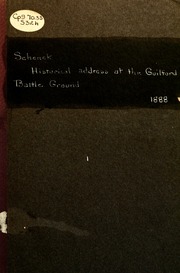 Cp970.73
S32h
Schenck
Historical address at the Guilford
Battle Ground
1888